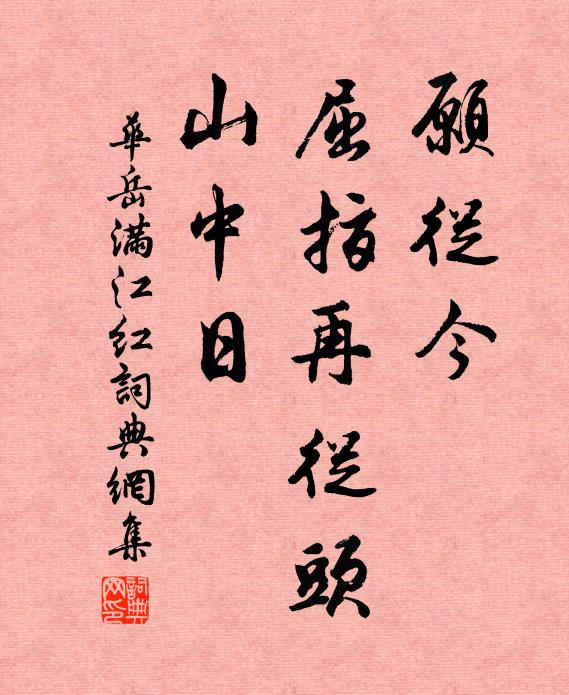 願從今
屈指再從頭
山中日
華岳滿江紅詞典網集
詞典網印